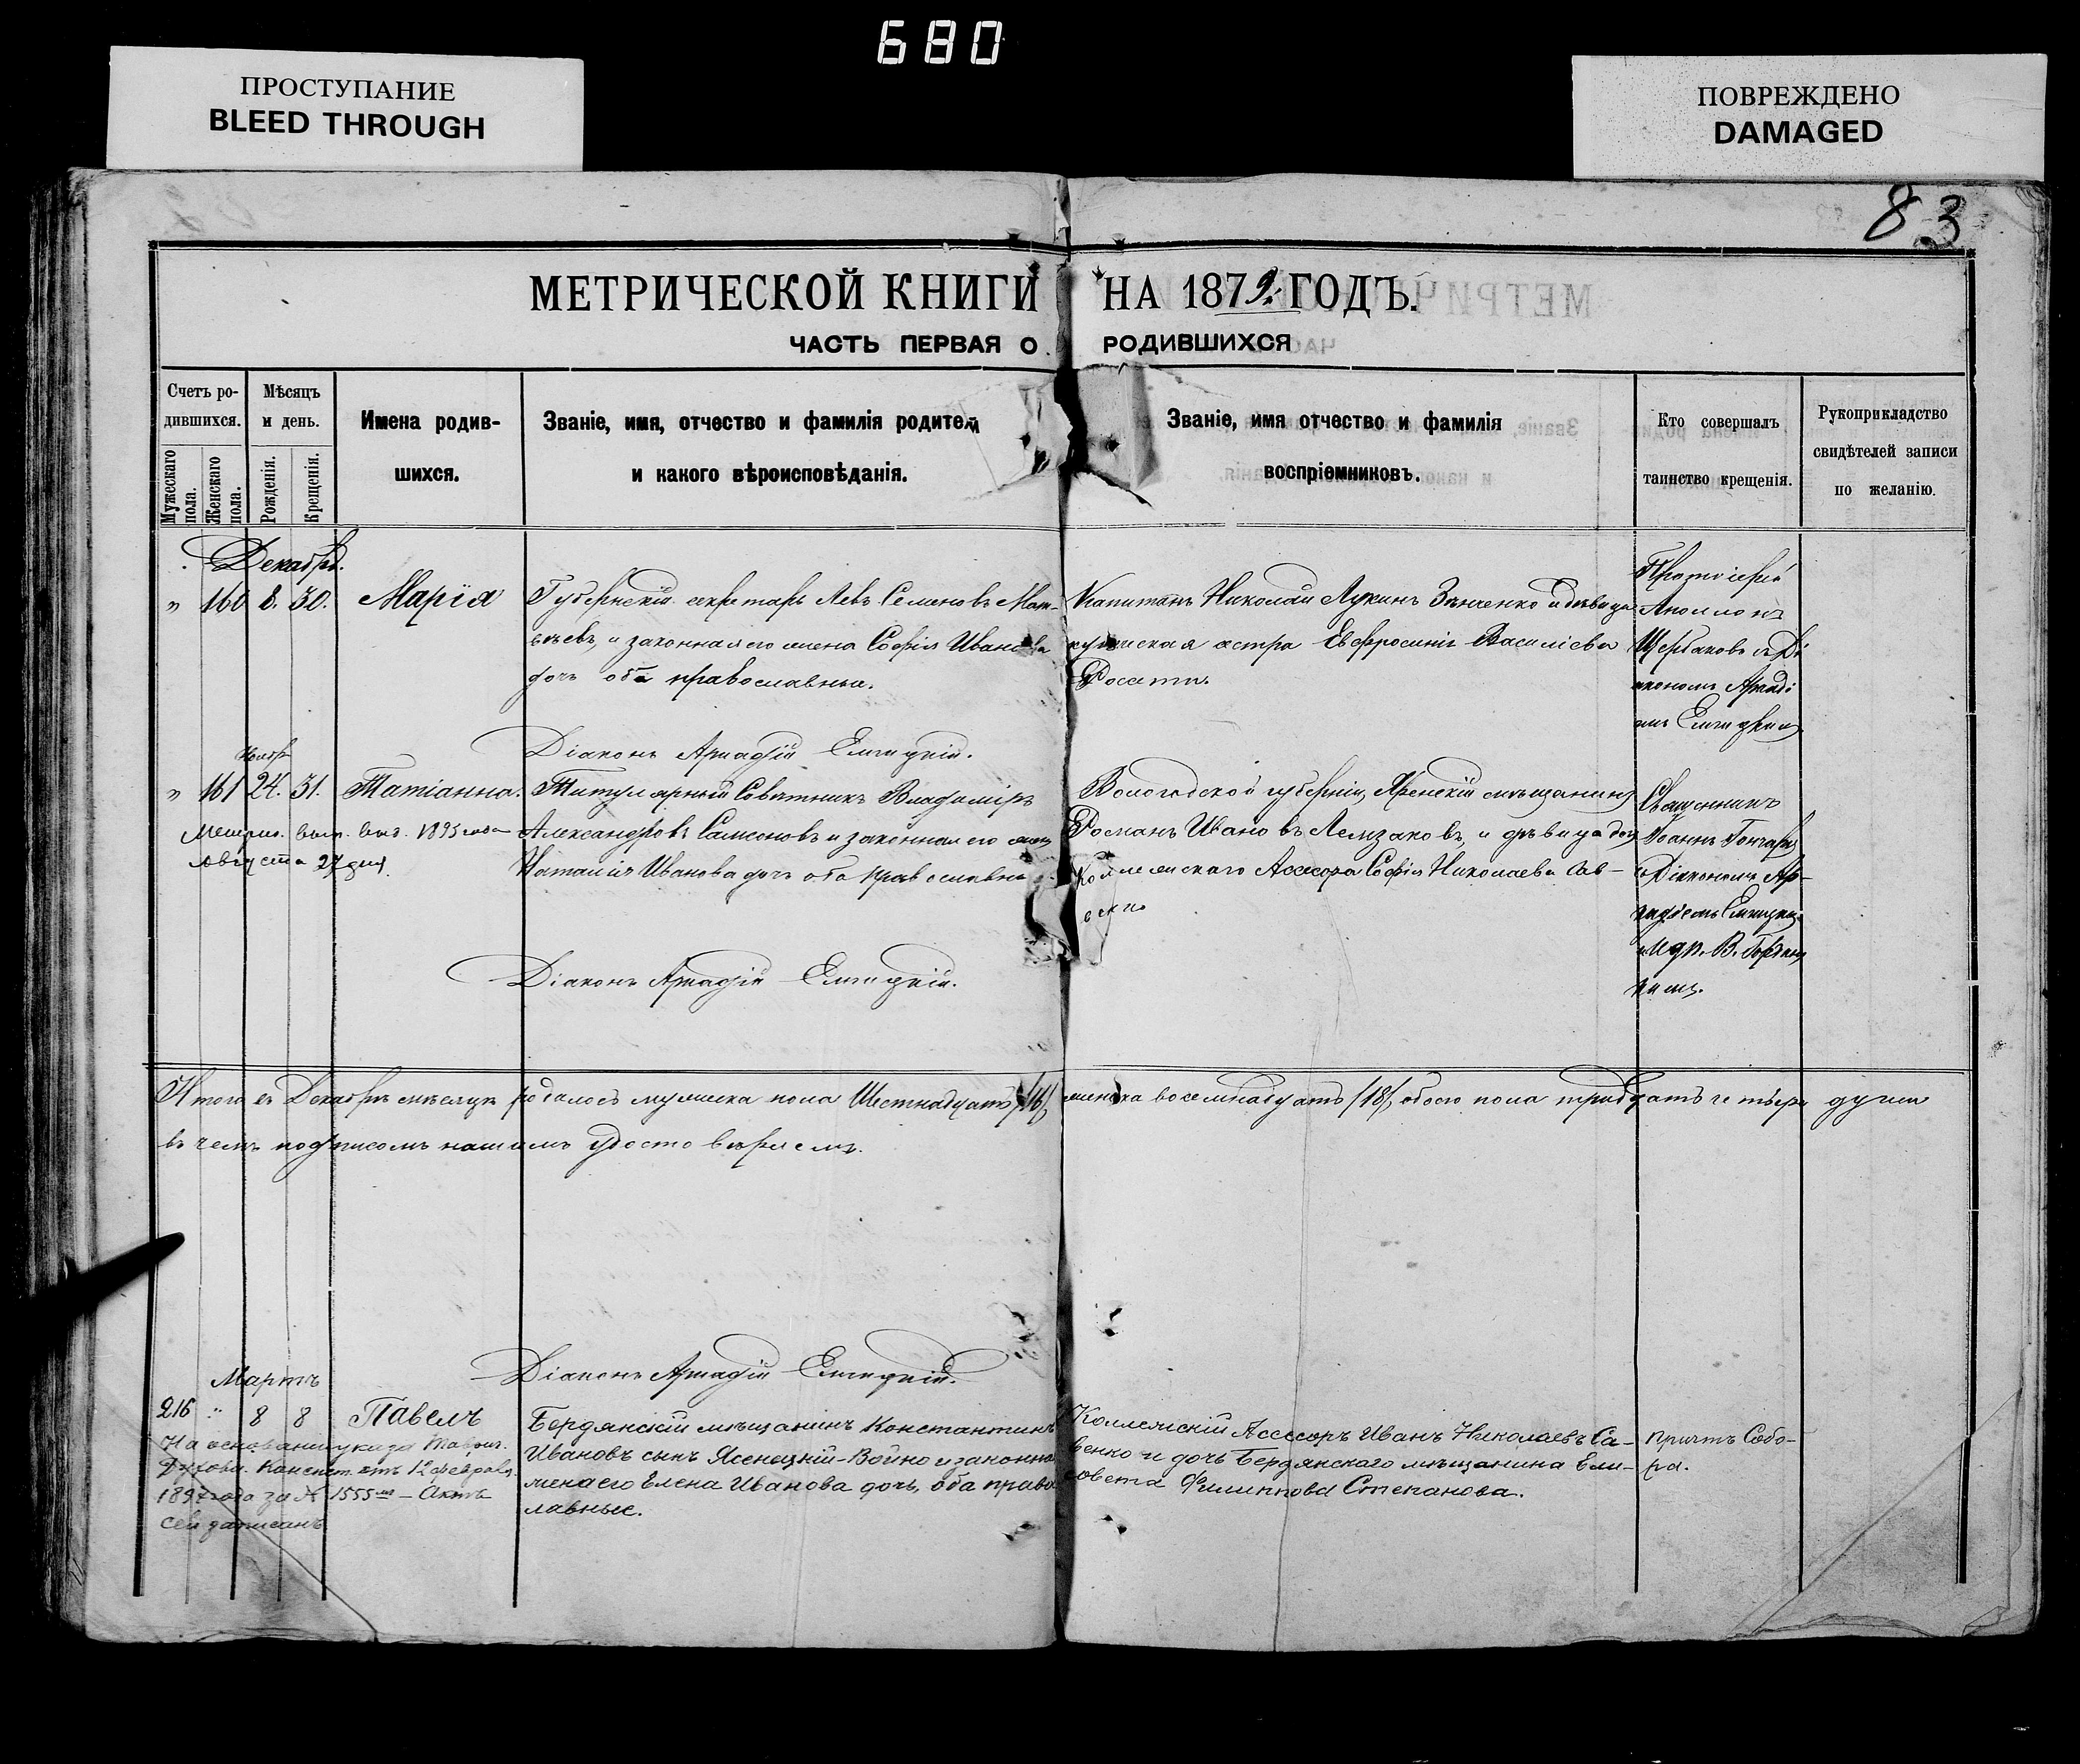 680
ПРОСТУПАНИЕ
BLEED THROUGH
ПОВРЕЖДЕНО
DAMAGED
83
МЕТРИЧЕСКОЙ КНИГИ НА 1879 ГОДЪ.
ЧАСТЬ ПЕРВАЯ О РОДИВШИХСЯ
Счетъ ро-
дившихся.
Мужескаго пола.
Женскаго пола.
Мѣсяцъ
и день.
Рожденія.
Крещенія.
Имена родив-
шихся.
Званіе, имя, отчество и фамилія родителей
и какого вѣроисповѣданія.
Званіе, имя отчество и фамилія
воспріемниковъ.
Кто совершалъ
таинство крещенія.
Рукоприкладство
свидѣтелей записи
по желанію.
Декабрь.
" 160 8. 30. Марія
Губернскій секретарь Левъ Семеновъ
и законная его жена Софія Иванова
дочь оба православные.
Капитанъ Николай Лукинъ Зѣнченко и дѣвица
сестра Евфросинія Василіева
Протоіерей
Аполлонъ
Щербаковъ съ Ді
акономъ Аркаді
Діаконъ Аркадій
Ноябр
" 161 24. 31. Татіанна.
Метрич. вып. выд. 1895 года
Августа 27 дня.
Титулярный Совѣтникъ Владиміръ
Александровъ Самсоновъ и законная его жена
Наталія Иванова дочь оба православные
Вологодской губерніи, Яренскій мѣщанинъ
Романъ Ивановъ Лемзаковъ, и дѣвица дочь
Коллежскаго Ассесора Софія Николаева Сав-
Священникъ
Іоаннъ Гончаръ
съ Діакономъ Ар-
кадіемъ
Діаконъ Аркадій
Итого въ Декабрѣ мѣсяцѣ родилось мужеска пола Шестнадцать /16/, женска восемнадцать /18/, обоего пола тридцать четыре души
въ чемъ подписомъ нашимъ удостовѣряемъ.
Діаконъ Аркадій
Мартъ
216 " 8 8 Павелъ
На основаніи указа Таврич.
Духовн. Консист. отъ 12 февраля
1897 года за № 1555мъ – Актъ
сей записанъ
Бердянскій мѣщанинъ Константинъ
Ивановъ сынъ Ясенецкій-Войно и законная
жена его Елена Иванова дочь, оба право
славные.
Коллежскій Ассесоръ Иванъ Николаевъ Са-
венко и дочь Бердянскаго мѣщанина Ели-
совета Филиппова Степанова.
Причтъ Собо-
ра.